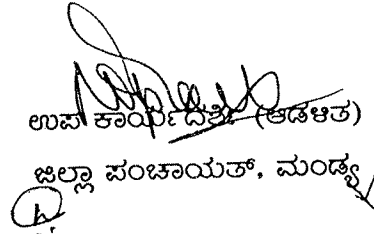 ಉಪ ಕಾರ್ಯದರ್ಶಿ (ಆಡಳಿತ)
ಜಿಲ್ಲಾ ಪಂಚಾಯತ್, ಮಂಡ್ಯ